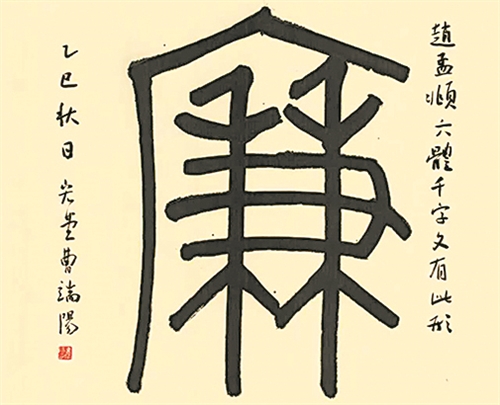 趙孟頫六體千字文有此形
廉
乙巳秋日 堂曹端陽